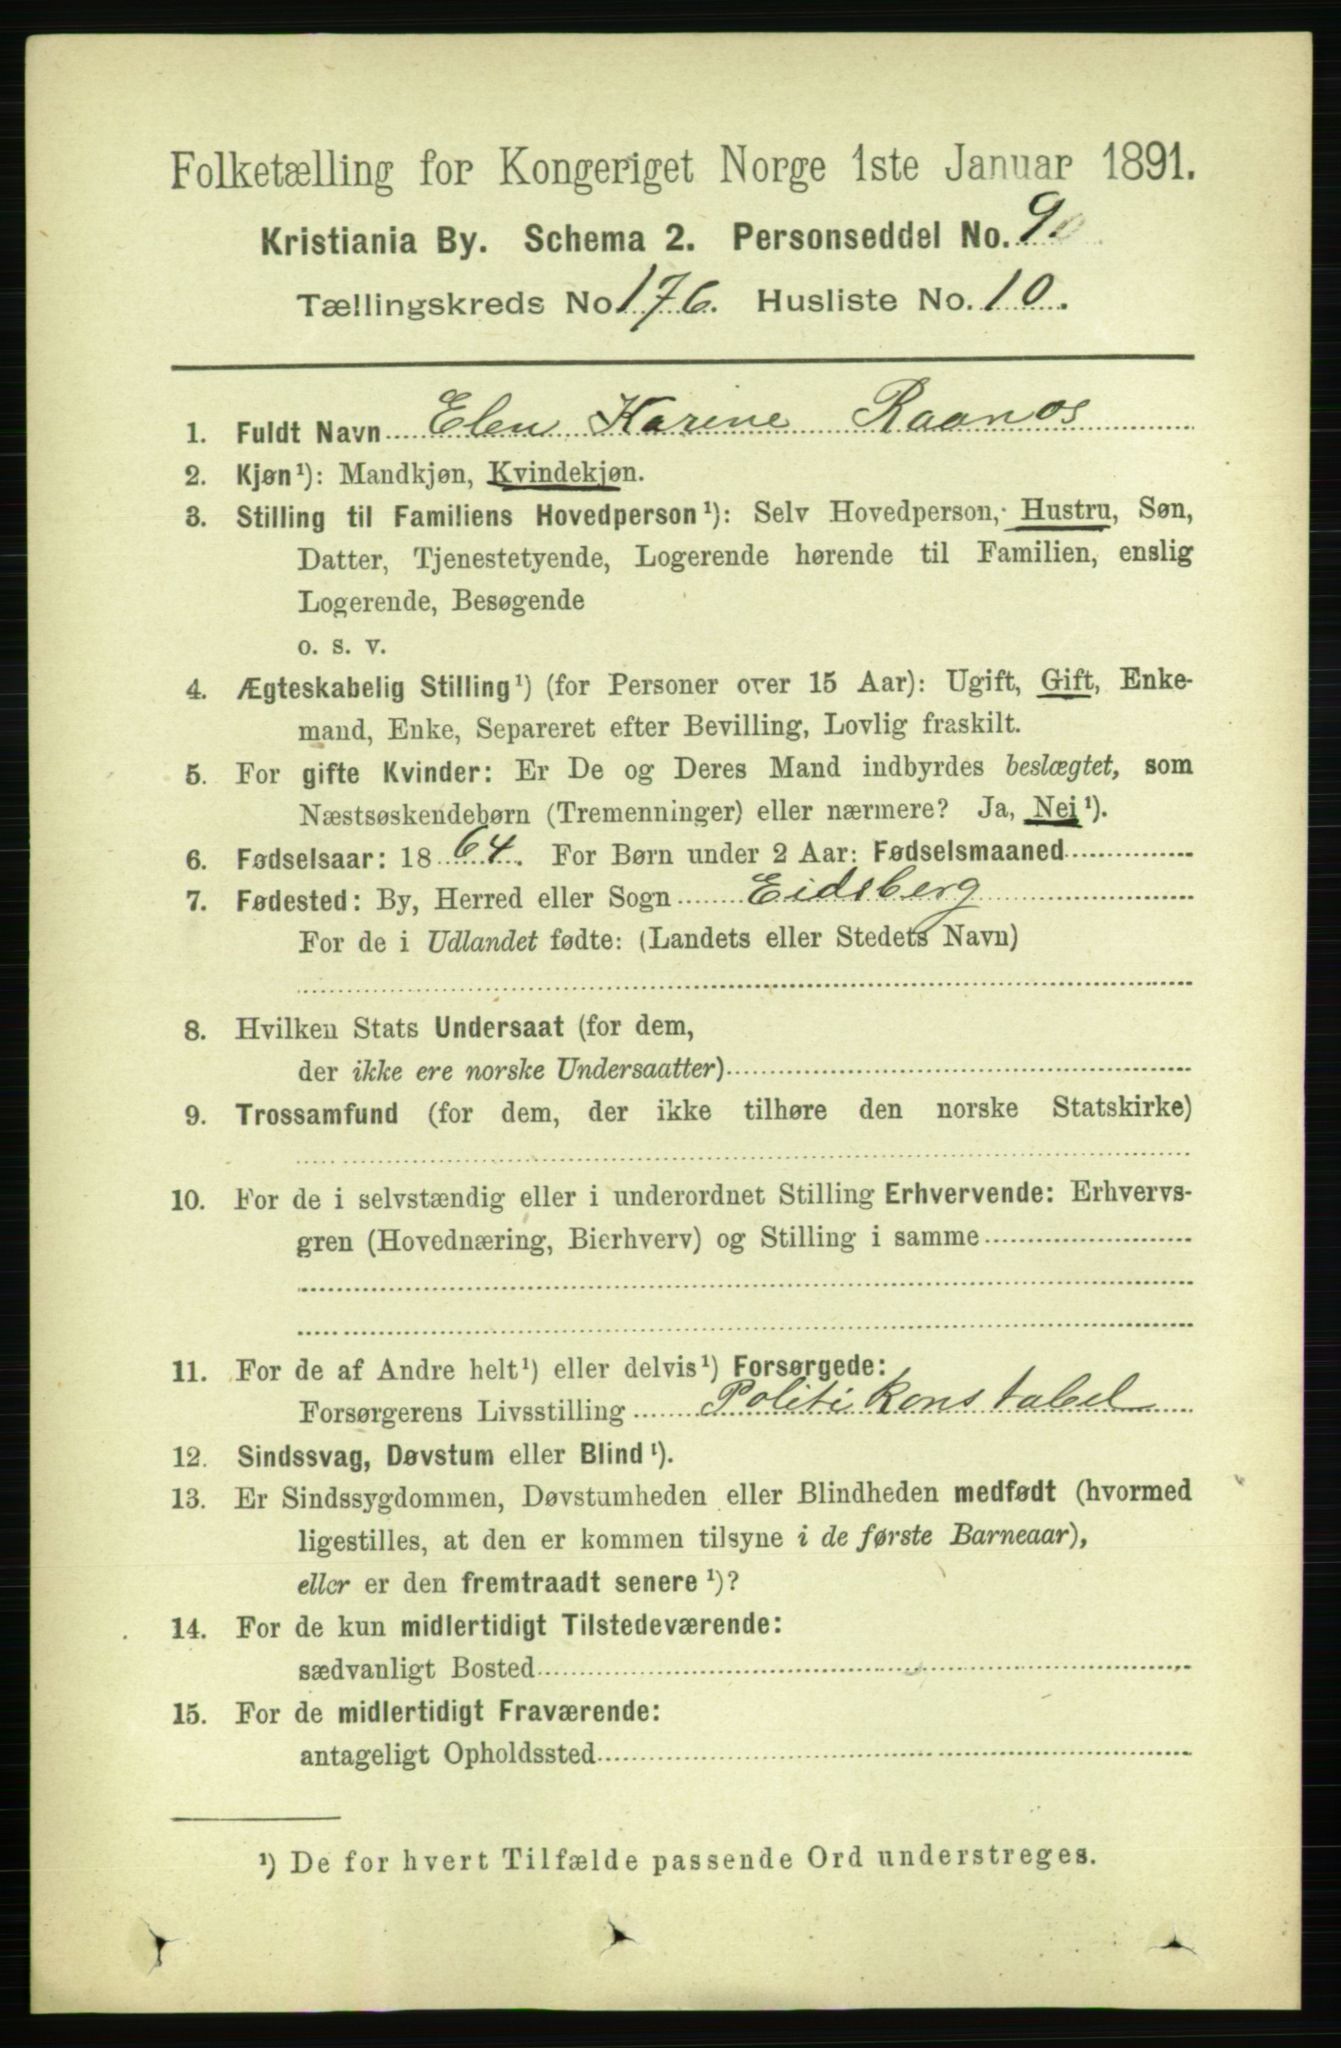 Folketælling for Kongeriget Norge 1ste Januar 1891.
Kristiania By. Schema 2. Personseddel No. 90.
Tællingskreds No 176. Husliste No. 10.
1. Fuldt Navn Elen Karine Raanos
2. Kjøn¹): Mandkjøn, Kvindekjøn.
3. Stilling til Familiens Hovedperson¹): Selv Hovedperson, Hustru, Søn,
Datter, Tjenestetyende, Logerende hørende til Familien, enslig
Logerende, Besøgende
o. s. v.
4. Ægteskabelig Stilling¹) (for Personer over 15 Aar): Ugift, Gift, Enke-
mand, Enke, Separeret efter Bevilling, Lovlig fraskilt.
5. For gifte Kvinder: Er De og Deres Mand indbyrdes beslægtet, som
Næstsøskendebørn (Tremenninger) eller nærmere? Ja, Nei¹).
6. Fødselsaar: 1864. For Børn under 2 Aar: Fødselsmaaned
7. Fødested: By, Herred eller Sogn Eidsberg
For de i Udlandet fødte: (Landets eller Stedets Navn)
8. Hvilken Stats Undersaat (for dem,
der ikke ere norske Undersaatter)
9. Trossamfund (for dem, der ikke tilhøre den norske Statskirke)
10. For de i selvstændig eller i underordnet Stilling Erhvervende: Erhvervs-
gren (Hovednæring, Bierhverv) og Stilling i samme
11. For de af Andre helt¹) eller delvis¹) Forsørgede:
Forsørgerens Livsstilling Politikonstabel
12. Sindssvag, Døvstum eller Blind¹).
13. Er Sindssygdommen, Døvstumheden eller Blindheden medfødt (hvormed
ligestilles, at den er kommen tilsyne i de første Barneaar),
eller er den fremtraadt senere¹)?
14. For de kun midlertidigt Tilstedeværende:
sædvanligt Bosted
15. For de midlertidigt Fraværende:
antageligt Opholdssted
¹) De for hvert Tilfælde passende Ord understreges.